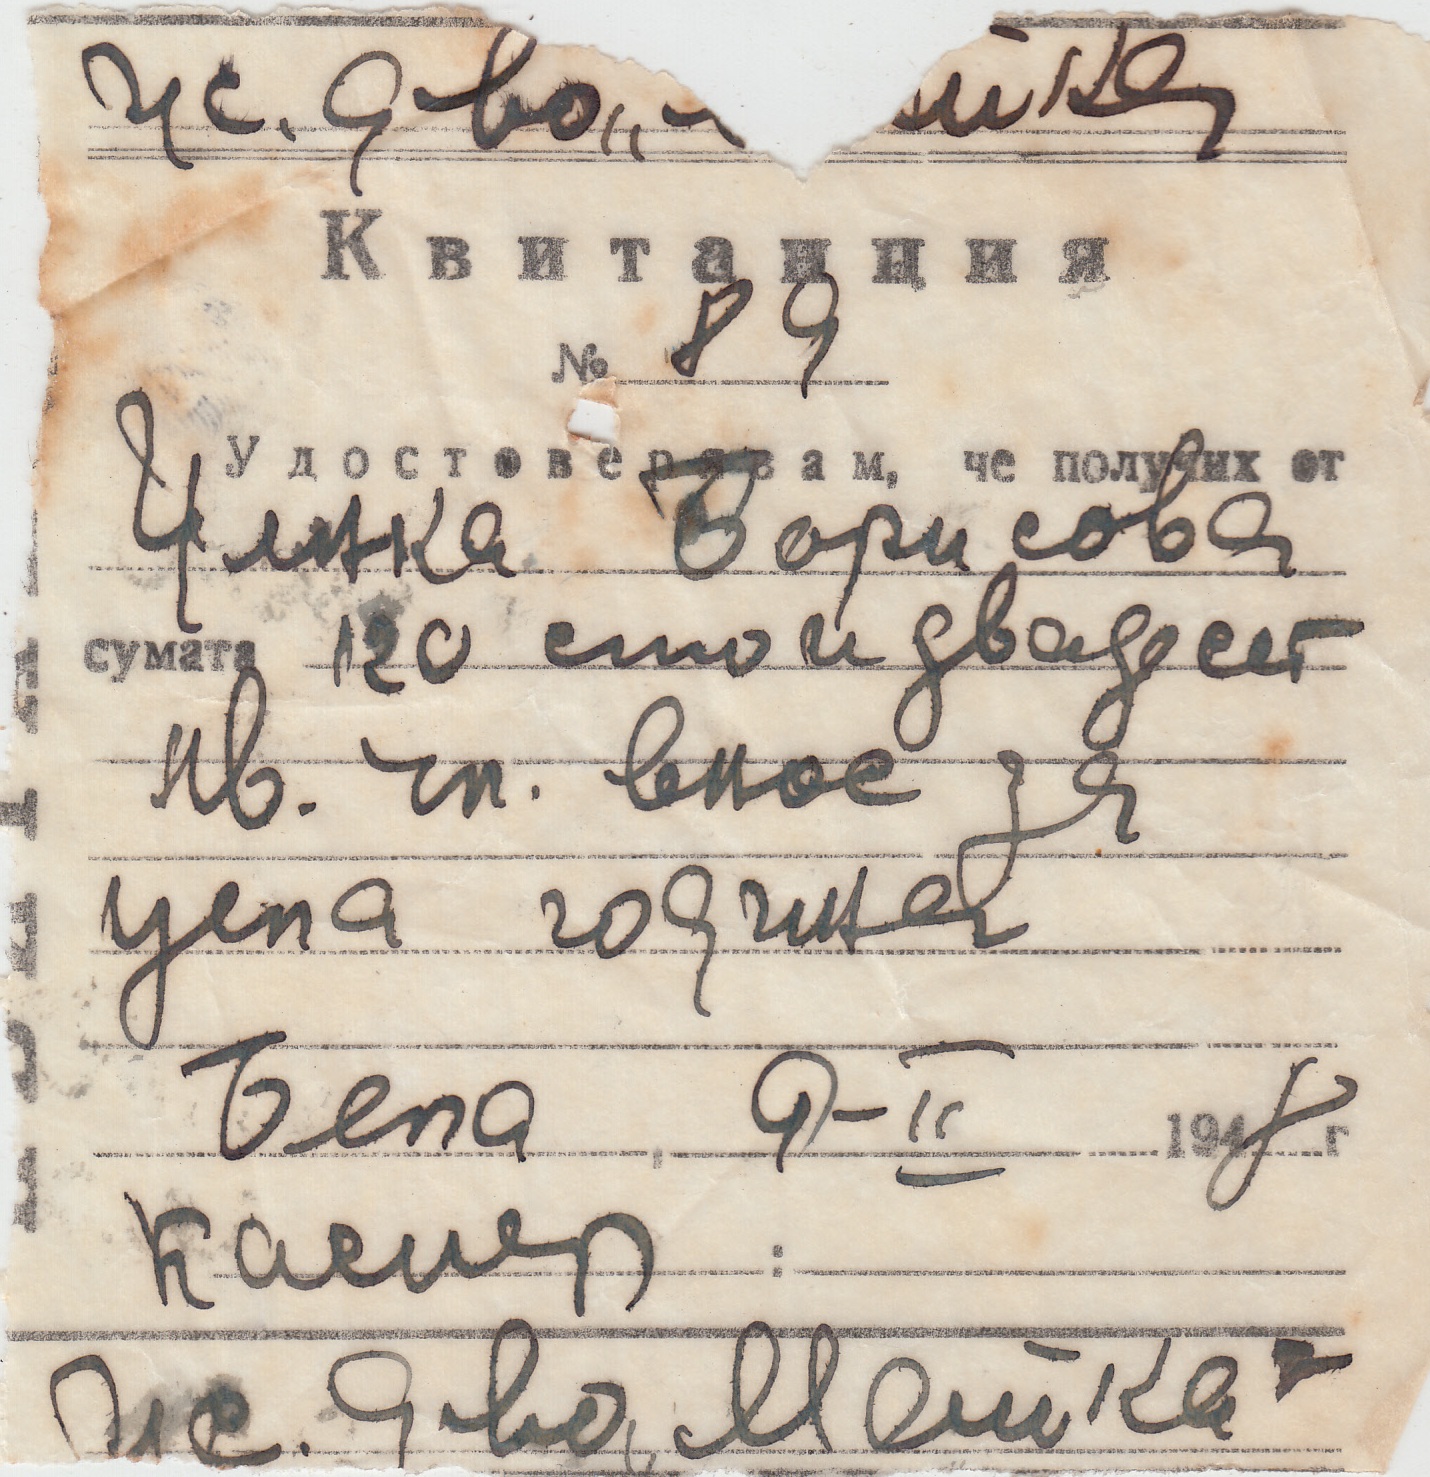 Жс. д-во „ Майка
Квитанция
№ 89
Удостоверявам, че получих от
Цветка Борисова
сумата 120 сто и двадесет
лв. чл. внос за
цела година
Бела, 9-II 1948 г
Касиер :
Жс. д-во „Майка"